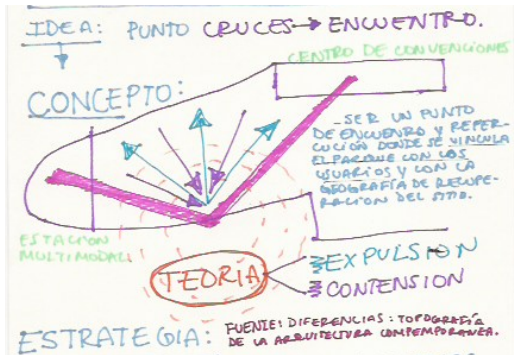 IDEA: PUNTO CRUCES → ENCUENTRO.
CENTRO DE CONVENCIONES
CONCEPTO:
_SER UN PUNTO
DE ENCUENRO Y REPER-
CUCIÓN DONDE SE VINCULA
EL PARQUE CON LOS
USUARIOS Y CON LA
GEOGRAFÍA DE RECUPE-
RACION DEL SITIO.
ESTACION
MULTIMODAL
TEORIA
EXPULSION
CONTENSION
ESTRATEGIA: FUENTE: DIFERENCIAS: TOPOGRAFÍA
DE LA ARQUITECTURA COMPEMPORANEA.